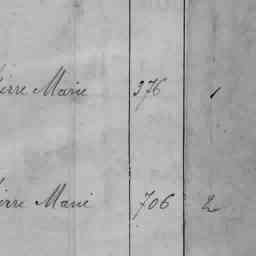 ierre Marie 376 1
ierre Marie 706 2